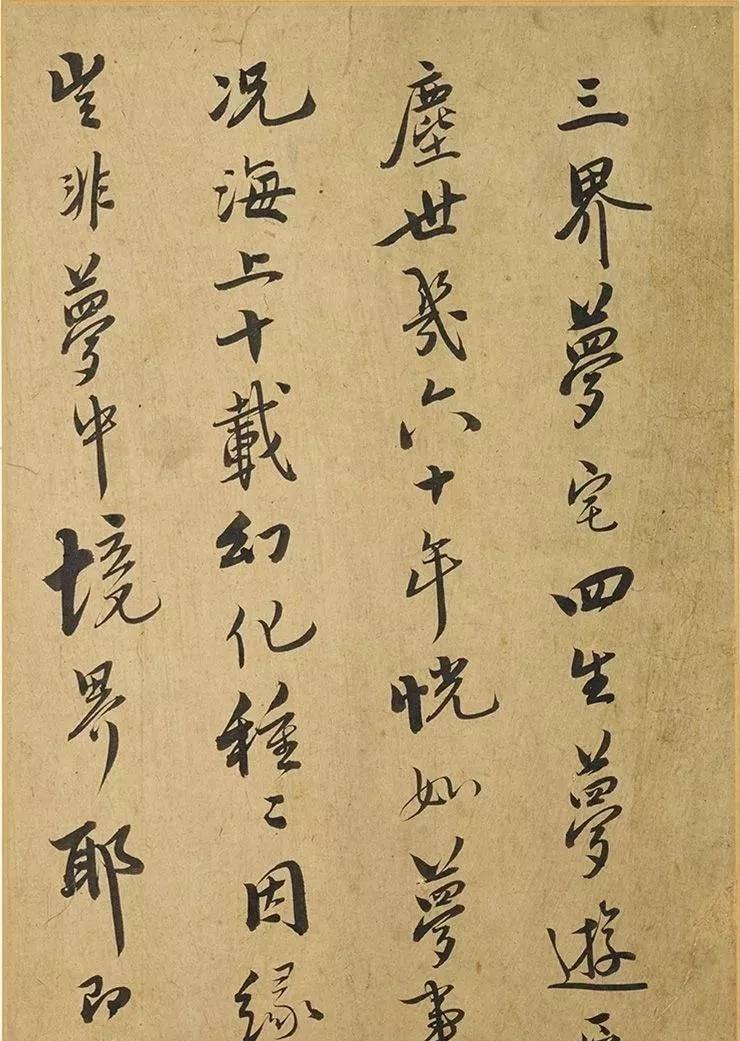 三界夢宅四生夢遊
塵世幾六十年恍如夢事
況海上十載幻化種〻因緣
豈非夢中境界耶即